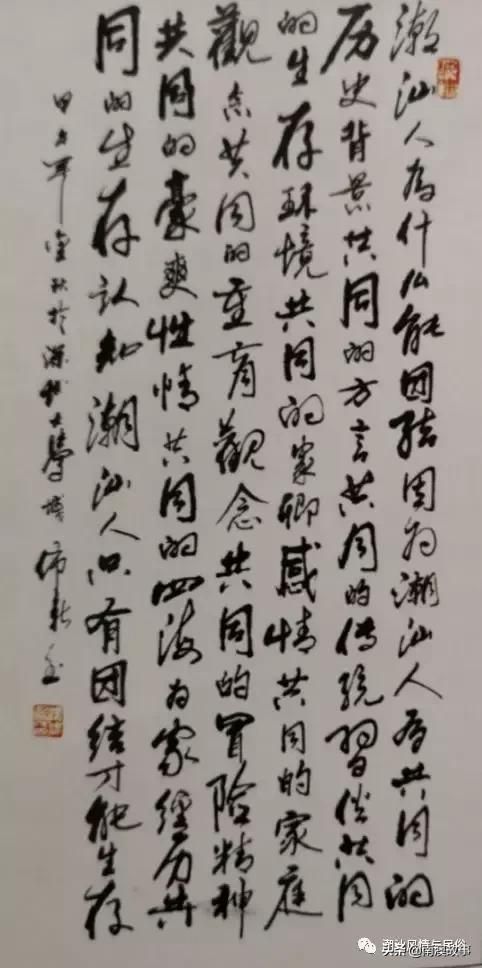 潮汕人為什么能团结因为潮汕人有共同的
历史背景共同的方言共同的传统習俗共同
的生存环境共同的家鄉感情共同的家庭
觀点共同的重觀念共同的冒险精神
共同的豪爽性情共同的四海为家經历共
同的生存认知潮汕人只有团结才能生存
甲午年金秋於深圳大學
潮汕风情与民俗
头条@南溪故事